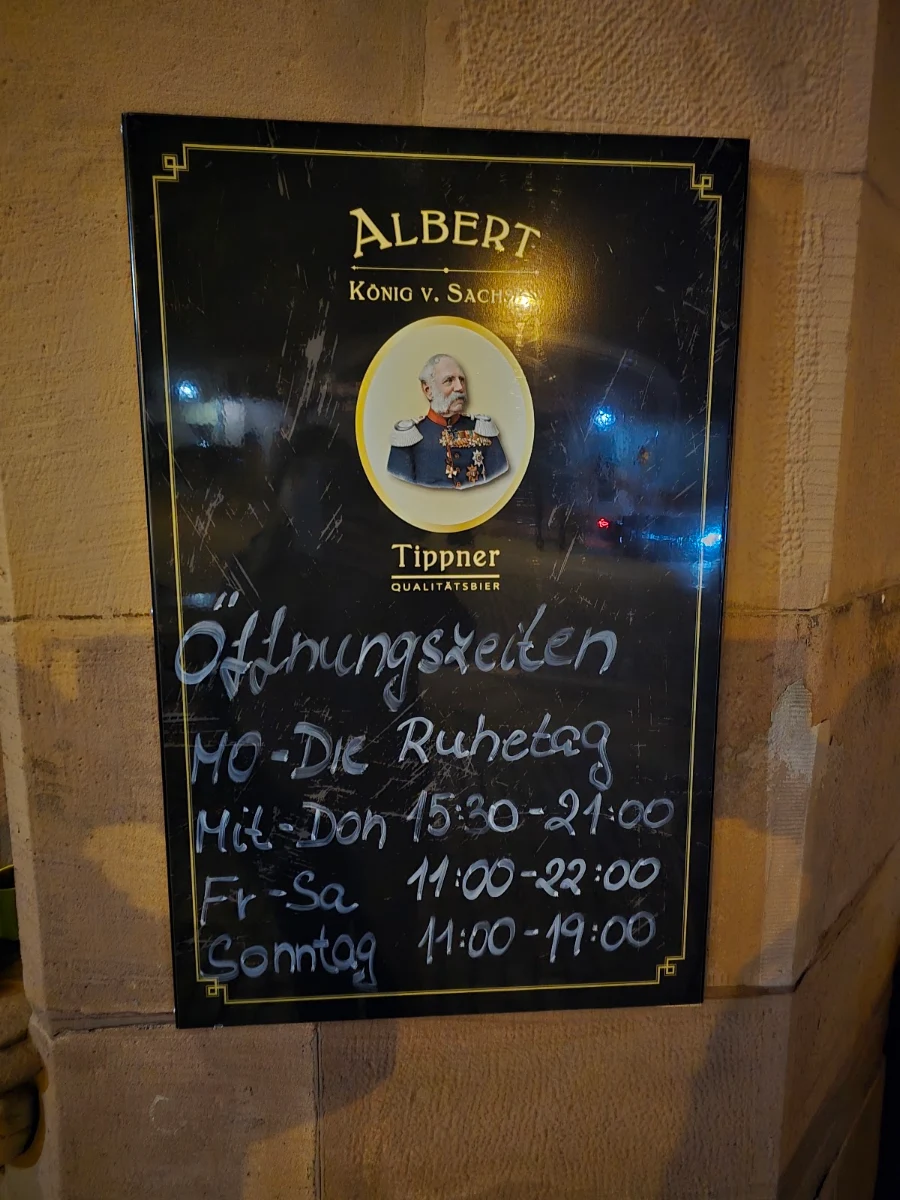 ALBERT
KÖNIG V. SACHSEN
Tippner
QUALITÄTSBIER
Öffnungszeiten
MO-DIE Ruhetag
Mit-Don 15:30-21:00
Fr-Sa 11:00-22:00
Sonntag 11:00-19:00